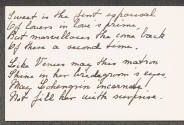 Sweet is the first espousal
Of lovers in love's prime,
But marvellous the come back
Of them a second time.
Like Venus may this matron
Shine in her bridegroom's eyes,
May Lohengrin incarnate
Not fill her with surprise.